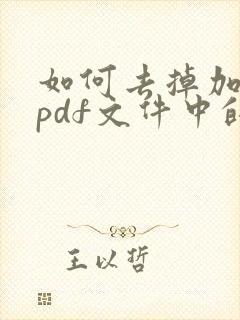 如何去掉加
pdf文件中的
王以哲